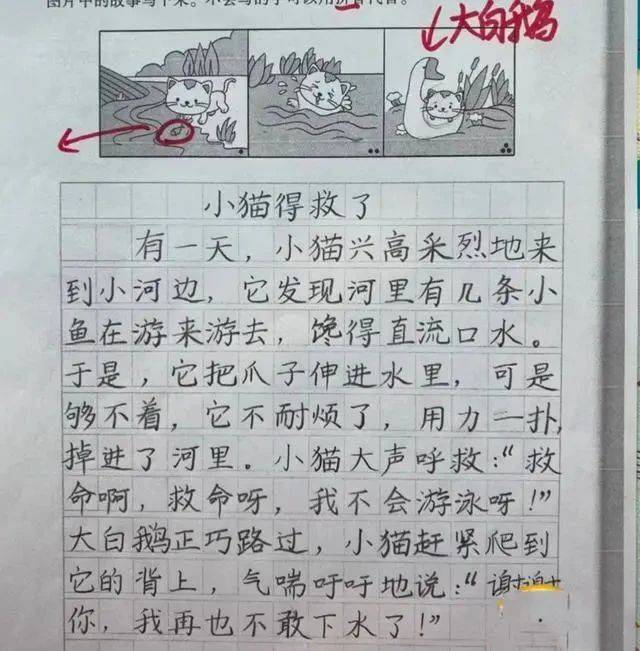 图片中的故事写下来。不会写的字可以用拼音代替。
大白鹅
小猫得救了
有一天，小猫兴高采烈地来
到小河边，它发现河里有几条小
鱼在游来游去，馋得直流口水。
于是，它把爪子伸进水里，可是
够不着，它不耐烦了，用力一扑，
掉进了河里。小猫大声呼救：“救
命啊，救命呀，我不会游泳呀！”
大白鹅正巧路过，小猫赶紧爬到
它的背上，气喘吁吁地说：“谢谢
你，我再也不敢下水了！”